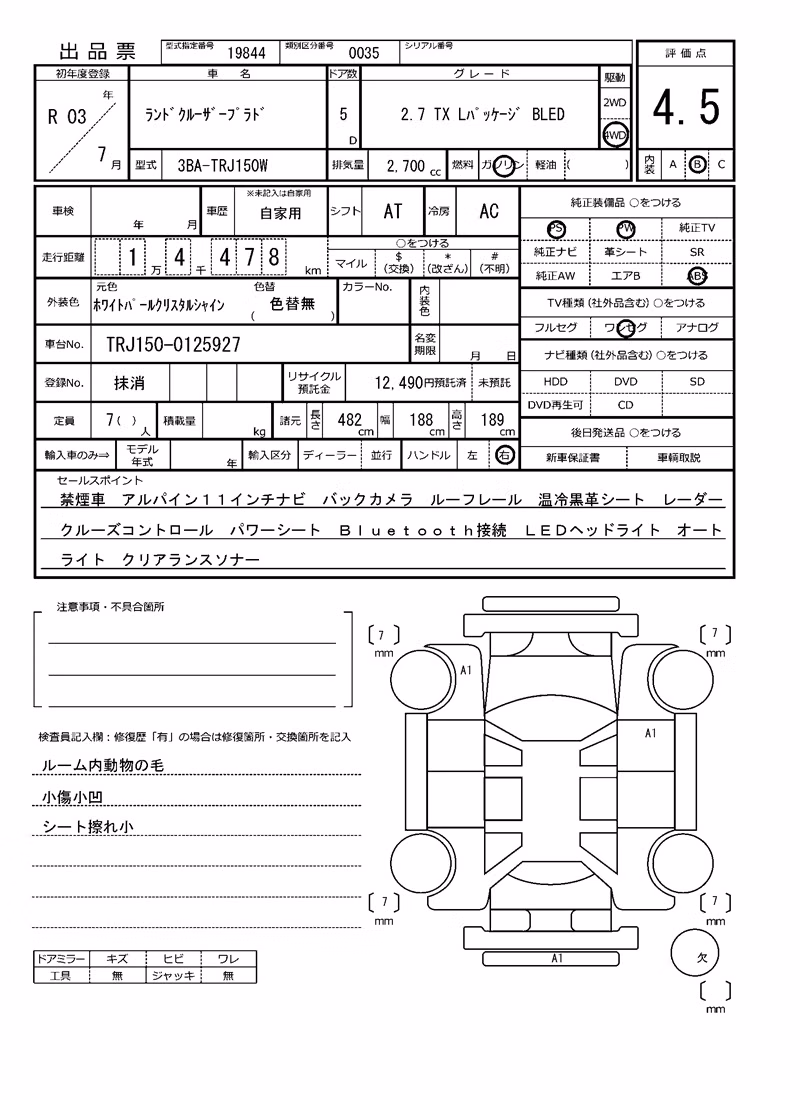 出品票 型式指定番号 19844 類別区分番号 0035 シリアル番号
評価点
4.5
内装 A B C
初年度登録 車名 ドア数 グレード 駆動
R 03 年 7 月 ランドクルーザープラド 5 D 2.7 TX Lパッケージ BLED 2WD 4WD
型式 3BA-TRJ150W 排気量 2,700 cc 燃料 ガソリン 軽油 ( )
車検 年 月 車歴 ※未記入は自家用 自家用 シフト AT 冷房 AC
走行距離 1 万 4 千 4 7 8 km ○をつける
マイル $(交換) *(改ざん) #(不明)
外装色 元色 ホワイトパールクリスタルシャイン 色替 ( 色替無 ) カラーNo. 内装色
車台No. TRJ150-0125927 名変期限 月 日
登録No. 抹消 リサイクル預託金 12,490円預託済 未預託
定員 7 ( ) 人 積載量 kg 諸元 長さ 482 cm 幅 188 cm 高さ 189 cm
輸入車のみ⇒ モデル年式 年 輸入区分 ディーラー 並行 ハンドル 左 右
純正装備品 ○をつける
PS PW 純正TV
純正ナビ 革シート SR
純正AW エアB ABS
TV種類(社外品含む)○をつける
フルセグ ワンセグ アナログ
ナビ種類(社外品含む)○をつける
HDD DVD SD
DVD再生可 CD
後日発送品 ○をつける
新車保証書 車輌取説
セールスポイント
禁煙車 アルパイン11インチナビ バックカメラ ルーフレール 温冷黒革シート レーダー
クルーズコントロール パワーシート Bluetooth接続 LEDヘッドライト オート
ライト クリアランスソナー
注意事項・不具合箇所
検査員記入欄:修復歴「有」の場合は修復箇所・交換箇所を記入
ルーム内動物の毛
小傷小凹
シート擦れ小
ドアミラー キズ ヒビ ワレ
工具 無 ジャッキ 無
[7] mm [7] mm
A1
A1
[7] mm [7] mm
A1
欠
[ ] mm